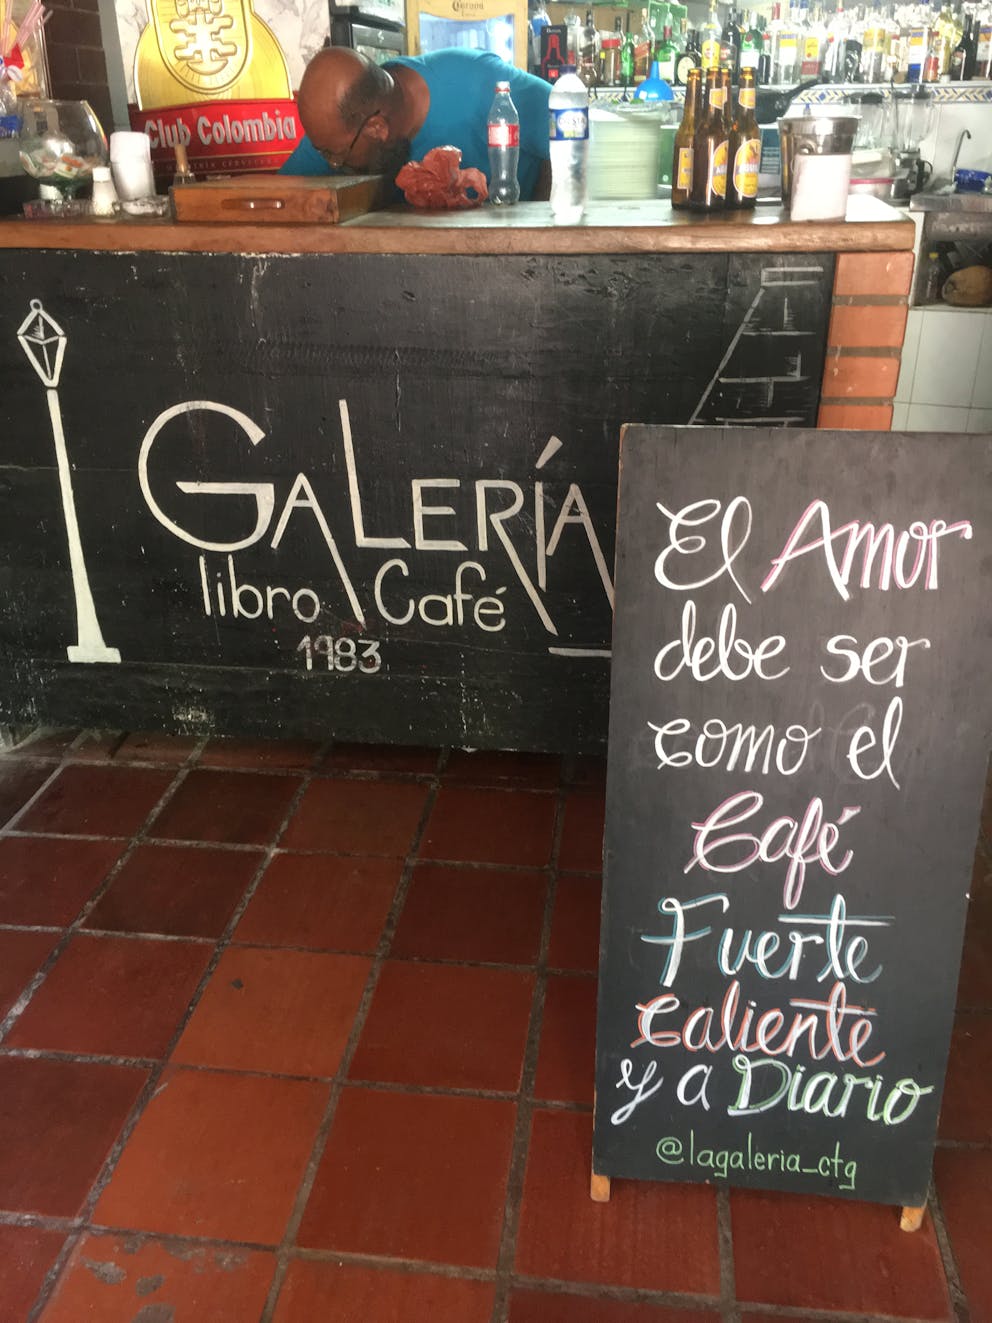 Corona
Club Colombia
GALERÍA
libro Café
1983
El Amor
debe ser
como el
Café
Fuerte
caliente
y a Diario
@lagaleria_ctg